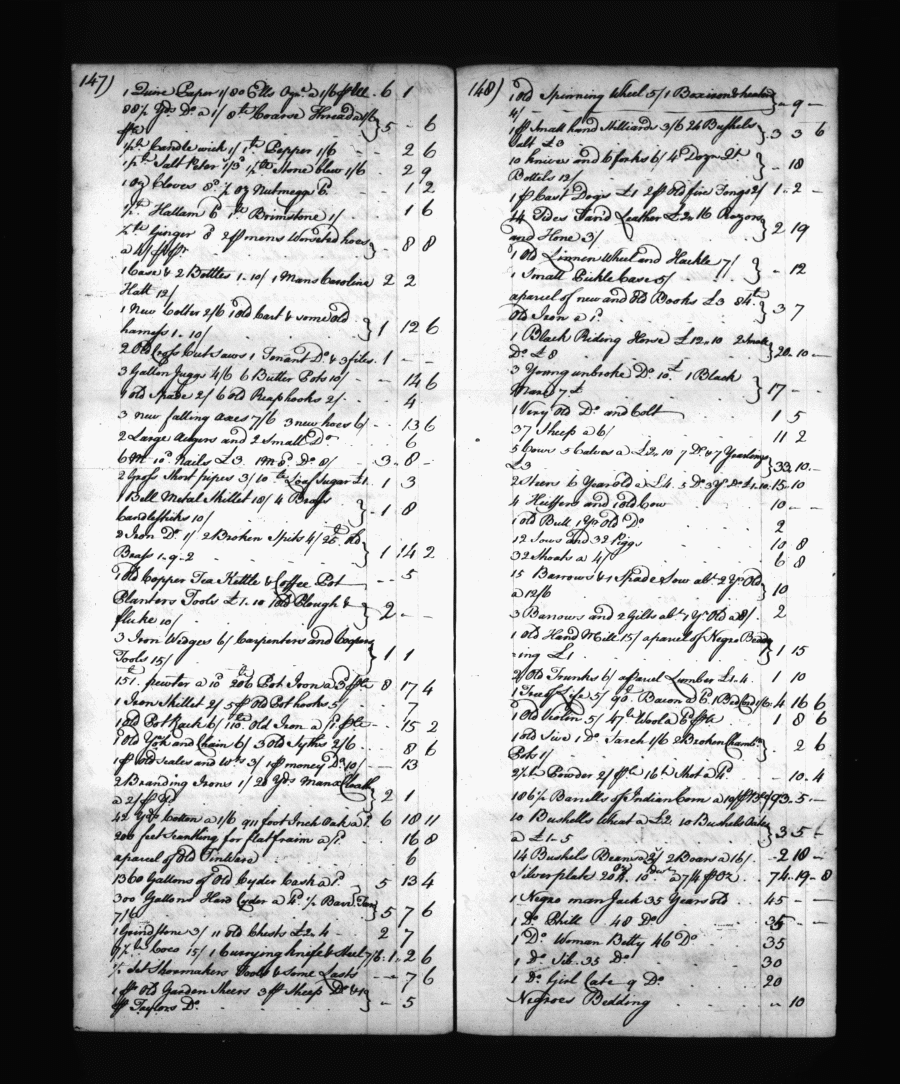 147)
1 Quire Paper 1/ 80 Ells Ozn. a 1/6 ⅌ Ell . 6 1
88½ Yds. Do. a 1/ 8 lb Hoarse Thread a 1/6 } 5 - 6
½ lb. Candlewick 1/ 1 lb Pepper 1/6 - - 2 6
1 lb Salt Peter 1/3 Stone blew 1/6 - 2 9
1 oz Cloves 8d ½ oz Nutmeggs 6d. 1 2
½ lb. 6d 1 lb. Brimstone 1/ 1 6
½ lb Ginger 8d 2 pr mens Worsted hoes } 8 8
a 4/
1 Case & 2 Bottles 1..10/ 1 Mans Carolina 2 2
Hatt 12/
1 New Colter 2/6 1 Old Cart & some old
harness 1..10/ } 1 12 6
2 Old Cross Cut Saws 1 Tenant Do. & 3 files . 1 - -
3 Gallon Juggs 4/6 6 Butter Pots 10/ -- 14 6
1 old Spade 2/ 6 old Reaphooks 2/ . 4
3 new falling Axes 7/6 3 new hoes 6/ 13 6
2 Large Augers and 2 small Do 6
6 M 10d Nails £3. 1 M 8d. Do 8/ . 3 . 8 -
2 Gross Short pipes 3/ 10 lb Loaf Sugar £1. 1 3
1 Bell Metal Skillet 18/ 4 Brass
Candlesticks 10/ } - 1 8
2 Iron Do. 1/ 2 Broken Spits 4/ 26 lb. Old
Brass 1..9..2 } 1 14 2
1 Old Copper Tea Kettle & Coffee Pot -- 5
Planters Tools £1..10 1 old Plough &
fluke 10/ } 2 - -
3 Iron Wedges 6/ Carpenters and Coopers
Tools 15/ } 1 1
151 lb. pewter a 10d 206 lb Pot Iron a 3d ⅌ lb 8 17 4
1 Iron Skillet 2/ 5 pr Old Pot hooks 5/ . 7
1 old Pot Rack 6/ 110 lb. Old Iron a 1d ⅌ lb -- 15 2
1 Old Yok and Chain 6/ 3 Old Syths 2/6 . . 8 6
1 pr old Scales and Wts 3/ 1 pr money Do 10/ -- 13
2 Branding Irons 1/ 20 Yds Manx Cloath
a 2/ ⅌ Yd. } 2 1
42 Yds Cotten a 1/6 911 foot Inch Oak a 1d. 6 18 11
200 feet Scantling for flatt fraim a 1d. 16 8
a parcel of Old Tin Ware 6
1360 Gallons of Old Cyder Cask a 1d. 5 13 4
300 Gallons Hard Cyder a 4d ½ Barr. Tarr
7/6 } 5 7 6
1 Grindstone 3/ 11 old Chests £2..4 - 2 7
7½ lb Coco 15/ 1 Currying knife & Steel 7/6 . 1 .. 2 6
½ Set Shoemakers Tools & some Lasts -- 7 6
1 pr Old Garden Sheers 3 pr Sheep Do. & 1
pr Taylors Do. } - 5
148)
1 Old Spinning Wheel 5/ 1 Box iron & heaters
4/ } - 9 -
1 pr Small hand Stilliards 3/6 24 Bushels
Salt £3 } . 3 3 6
10 knives and 6 forks 6/ 4 Dozn. Qt.
Bottels 12/ } - 18
1 pr Cast Dogs £1 2 pr Old fire Tongs 2/ 1 - 2 -
14 Sides Tand Leather £2..16 Razors
and Hone 3/ } 2 19
1 Old Linnen Wheel and Hackle 7/
1 Small Pickle Case 5/ } - 12
a parcel of new and old Books £3 84 lb
Old Iron a 1d. } 3 7
1 Black Riding Horse £12..10 2 Small
Do. £8 } 20..10 -
3 Young unbroke Do. 10 £ 1 Black
Mare 7 £ } 17 - -
1 Very Old Do. and Colt 1 5
37 Sheep a 6/ 11 2
5 Cows 5 Calves a £2..10 7 Do. & 7 Yearlings
£3 } 33..10 -
2 Steers 6 Year old a £4. 5 Do 3 Yr. Do £1..10 . 15 - 10
4 Heiffers and 1 old Cow 10 - -
1 old Bull 1 Yr Old Do 2
12 Sows and 32 Piggs 10 8
32 Shoats a 4/ 6 8
15 Barrows & 1 Spade Sow abt. 2 Yr. Old
a 12/6 } 10
3 Barrows and 2 Gilts abt. 1 Yr. Old a 8/ . 2
1 Old Hand Mill 15/ a parcel of Negro Bedd
=ing £1 } 1 15
2 Old Trunks 6/ a parcel Lumber £1..4 . 1 10
1 Tree of Life 5/ 90 lb. Bacon a 6d. 1 Bed Cord 1/6 . 4 16 6
1 Old Violin 5/ 47 lb Wool a 6d ⅌ lb 1 8 6
1 old Sive 1 Do. Sarch 1/6 2 Broken Chambr.
Pots 1/ } . 2 6
2½ lb Powder 2/ ⅌ lb 16 lb Shot a 4d - 10 . 4
186½ Barrells of Indian Corn a 10/ 93 . 5 -
10 Bushells Wheat a £2. 10 Bushels Oats
a £1..5 } 3 5 -
14 Bushels Beans a 3/ 2 Boars a 16/ - 2 18 -
Silver plate 204 oz. 10 dwt. a 7/4 ⅌ Oz. 74..19..8
1 Negro man Jack 35 Years old . 45 - -
1 Do. Phill 48 Do. 35 - -
1 Do. Woman Betty 46 Do 35
1 Do. Sib. 35 Do. 30
1 Do. Girl Cate 9 Do. 20
Negroes Bedding " 10